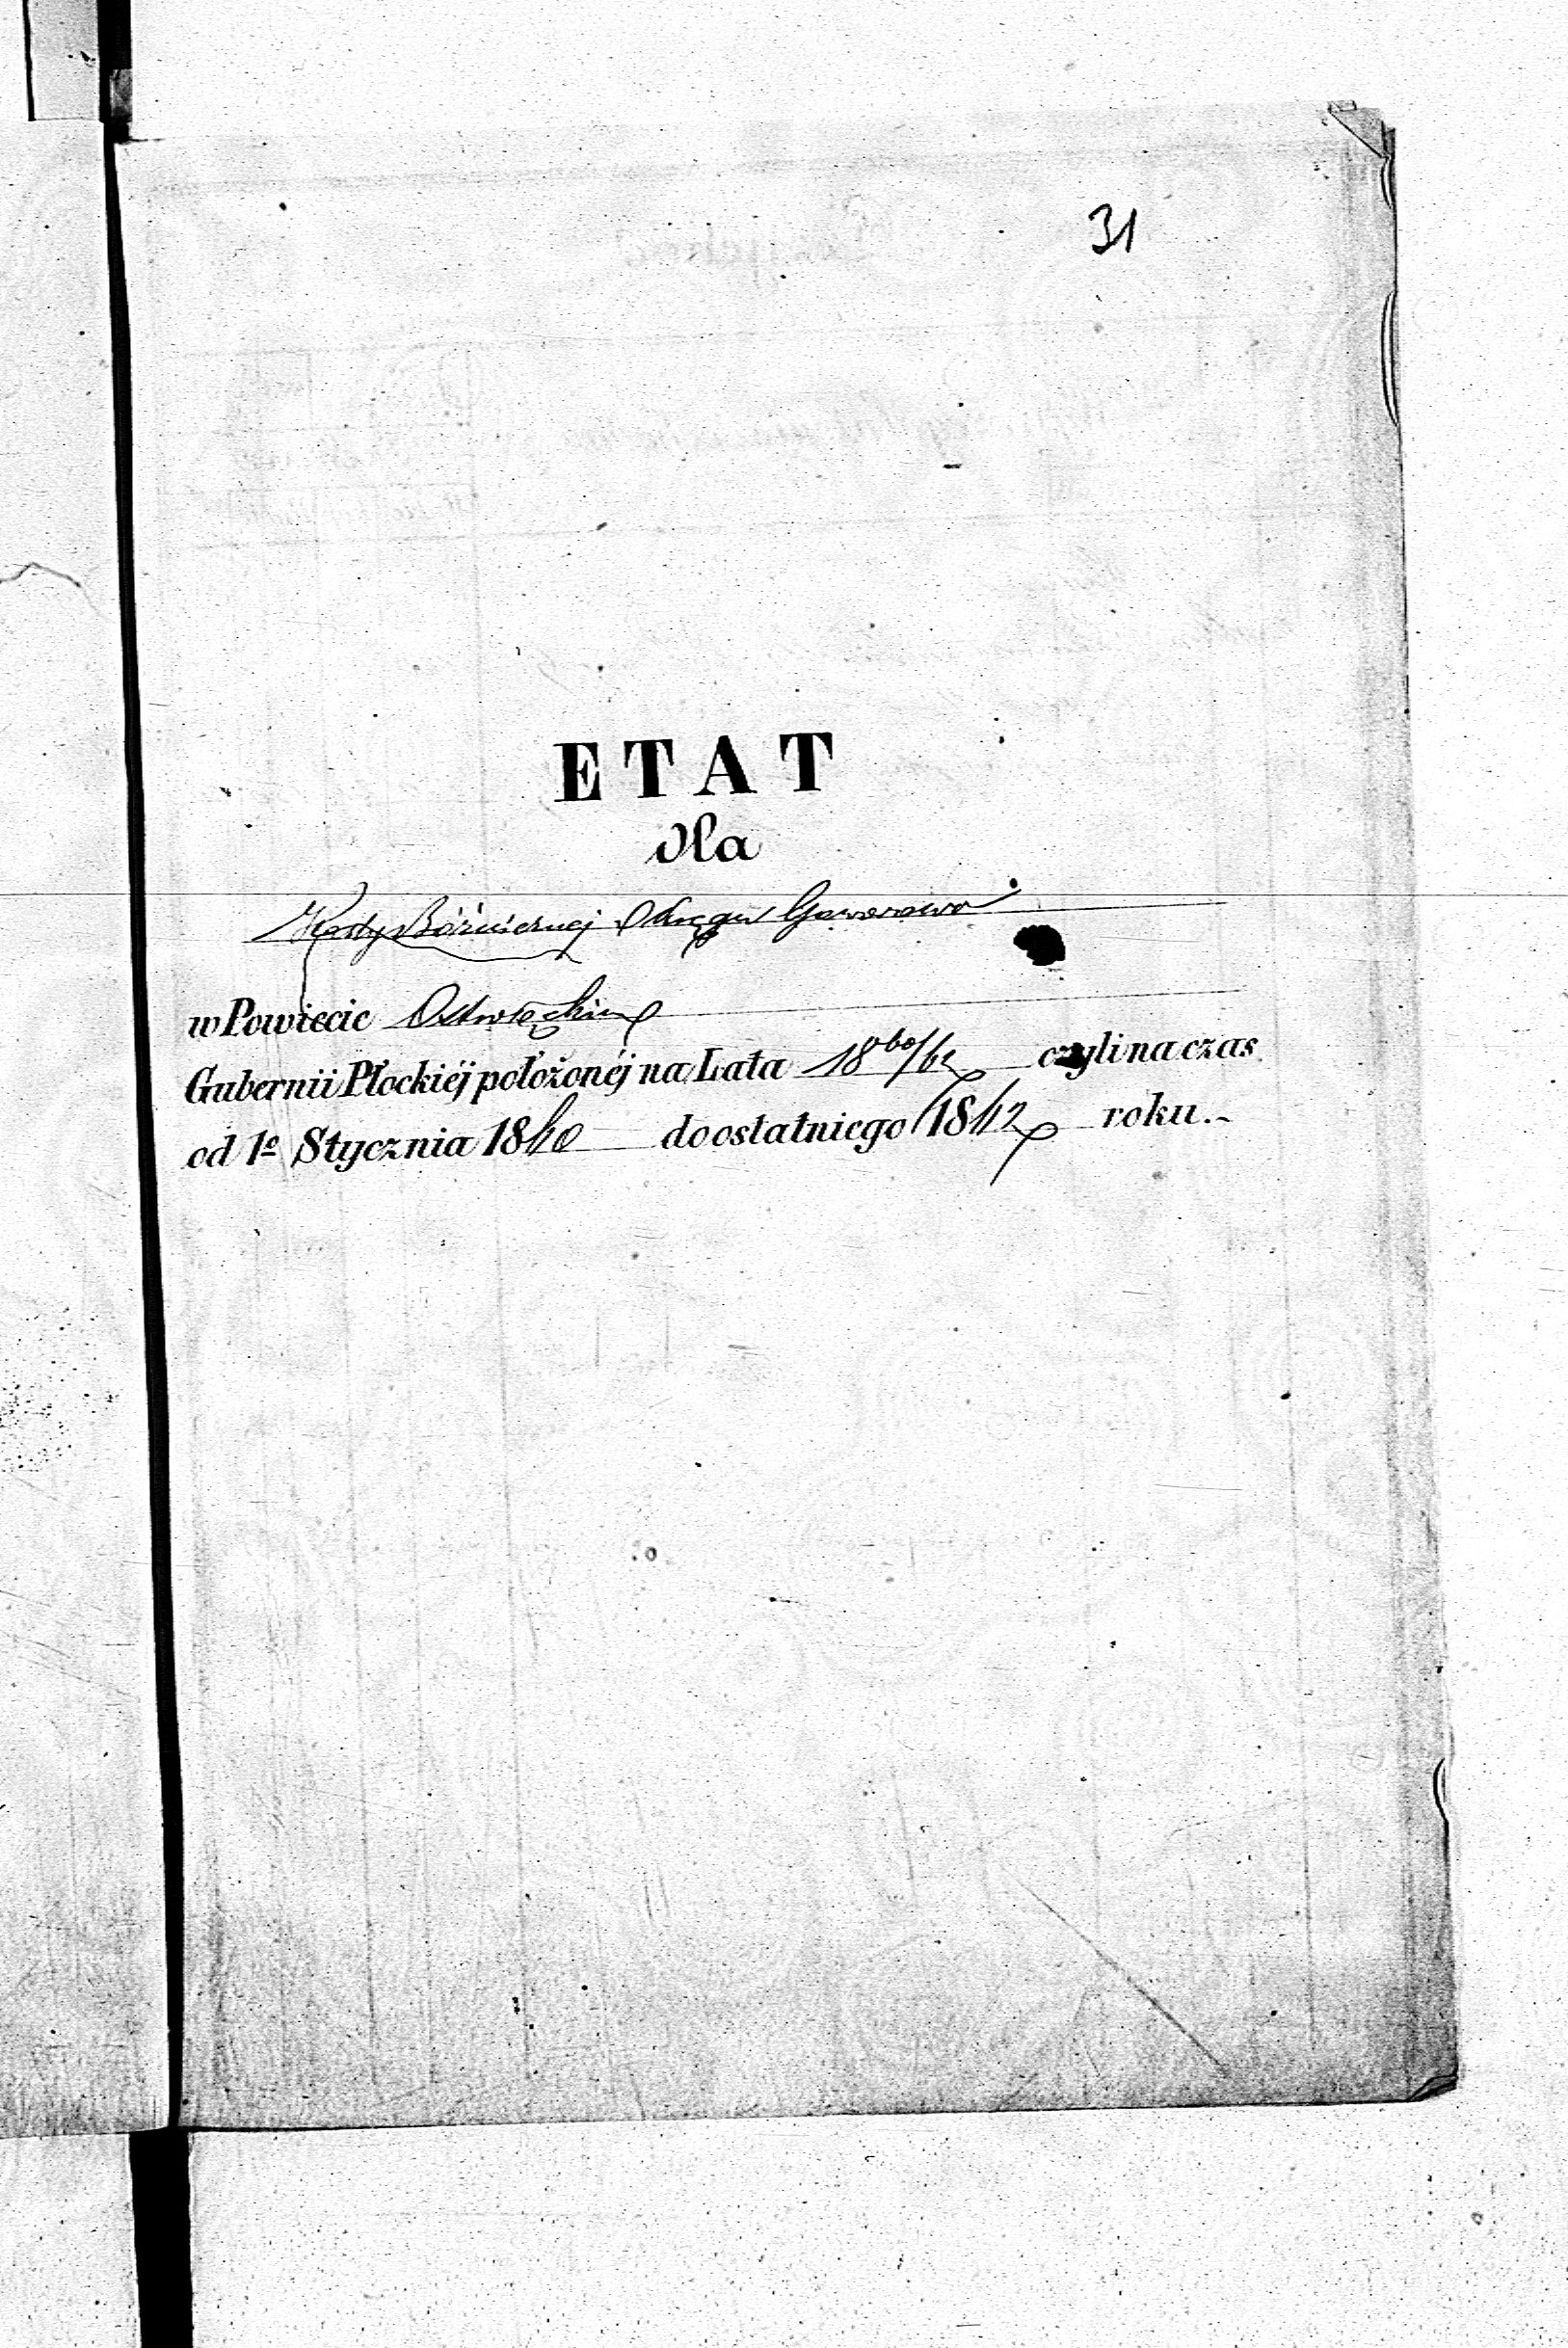 31
ETAT
dla
Kasy Bóżnicznej Okręgu Goworowo
w Powiecie Ostrołęckim
Gubernii Płockiéj położonéj na Lata 18 60/62 czyli na czas
od 1º Stycznia 1860 do ostatniego 1862 roku.